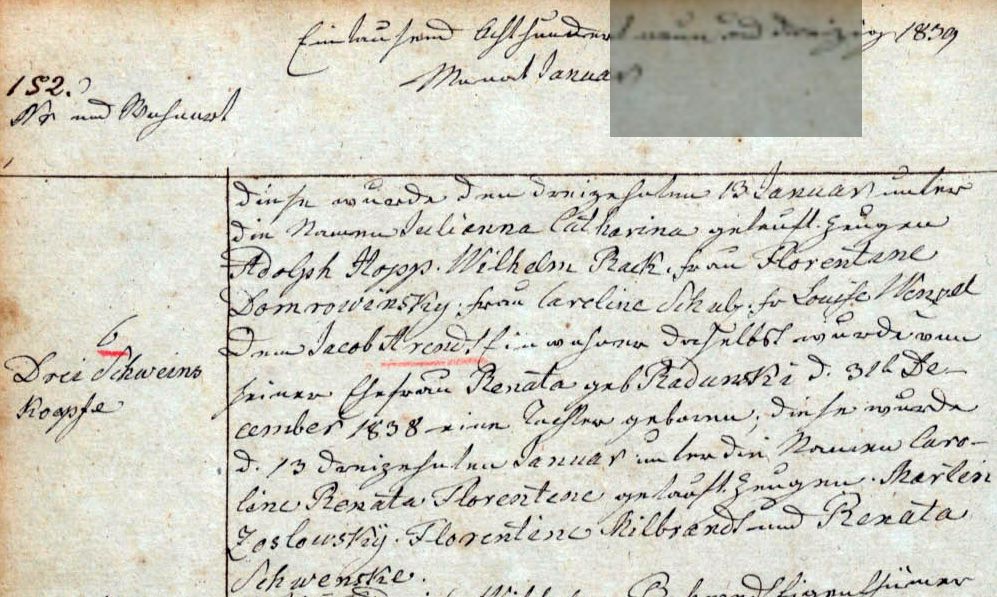 Eintausend Achthundert neun und dreizig 1839
Monat Januar
152.
Nr und Wohnort
diese wurde den dreizehnten 13 Januar unter
die Namen Julianna Catharina getauft. Zeugen
Adolph Hopp. Wilhelm Rack. frau Florentine
Domrowinsky. frau Caroline Schulz. fr Louise Wenzel
6
Drei Schweins
Koepfe
Dem Jacob Arendt Einwohner daselbst wurde von
seiner Ehefrau Renata geb Radunski d. 31t De-
cember 1838 eine Tochter geboren, diese wurde
d. 13 dreizehnten Januar unter die Namen Caro-
line Renata Florentine getauft. Zeugen. Martin
Zoslowskÿ. Florentine Milbrandt und Renata
Schwenske.